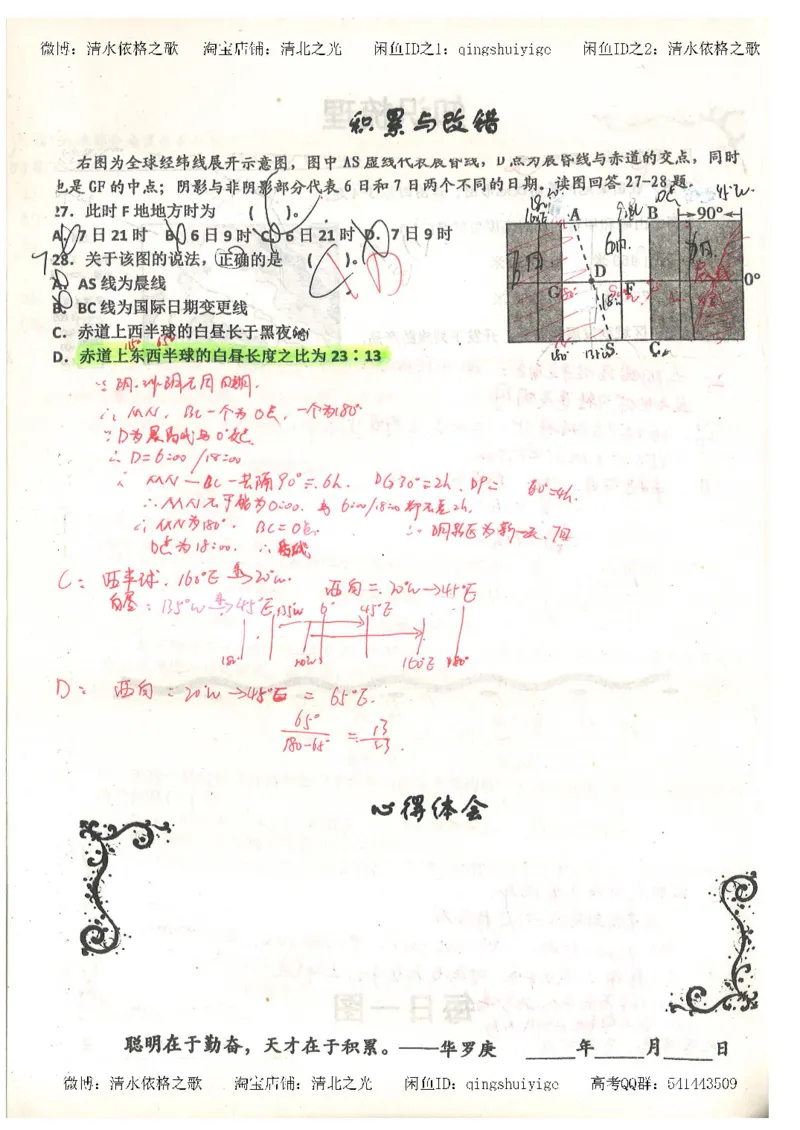 微博：清水依格之歌 淘宝店铺：清北之光 闲鱼ID之1：qingshuiyige 闲鱼ID之2：清水依格之歌
积累与改错
右图为全球经纬线展开示意图，图中 AS 虚线代表晨昏线，D 点为晨昏线与赤道的交点，同时
也是 GF 的中点；阴影与非阴影部分代表 6 日和 7 日两个不同的日期。读图回答 27-28 题。
27．此时 F 地地方时为 （ ）。
A．7 日 21 时 B．6 日 9 时 C．6 日 21 时 D．7 日 9 时
28．关于该图的说法，正确的是 （ ）。
D
A．AS 线为晨线
B．BC 线为国际日期变更线
C．赤道上西半球的白昼长于黑夜
D．赤道上东西半球的白昼长度之比为 23：13
115° 65°
180°
A B 90°
D
G F 0°
S C
180° 135°W
∵阴、非阴不同日期.
∴ MN、BC一个为0点，一个为180°
∵D为晨昏线与0°交点
∴ D=6:00 /18:00
∴ MN—BC一共隔90°=6h. DG30°=2h. DF= 60°=4h.
∴MN不可能为0:00. 与6:00/18:00都不差2h.
∴ MN为180°. BC=0点. ∴阴影区为新一天，7日
D点为18:00. ∴昏线
C： 西半球．160°E→20°W. 西白=20°W→45°E
白昼：135°W→45°E
135°W 0° 45°E
180° 20°W 160°E 180°
D： 西白：20°W→45°E = 65°E.
65°/180-65° = 13/23.
心得体会
聪明在于勤奋，天才在于积累。——华罗庚 _____年_____月_____日
微博：清水依格之歌 淘宝店铺：清北之光 闲鱼ID：qingshuiyige 高考QQ群：541443509